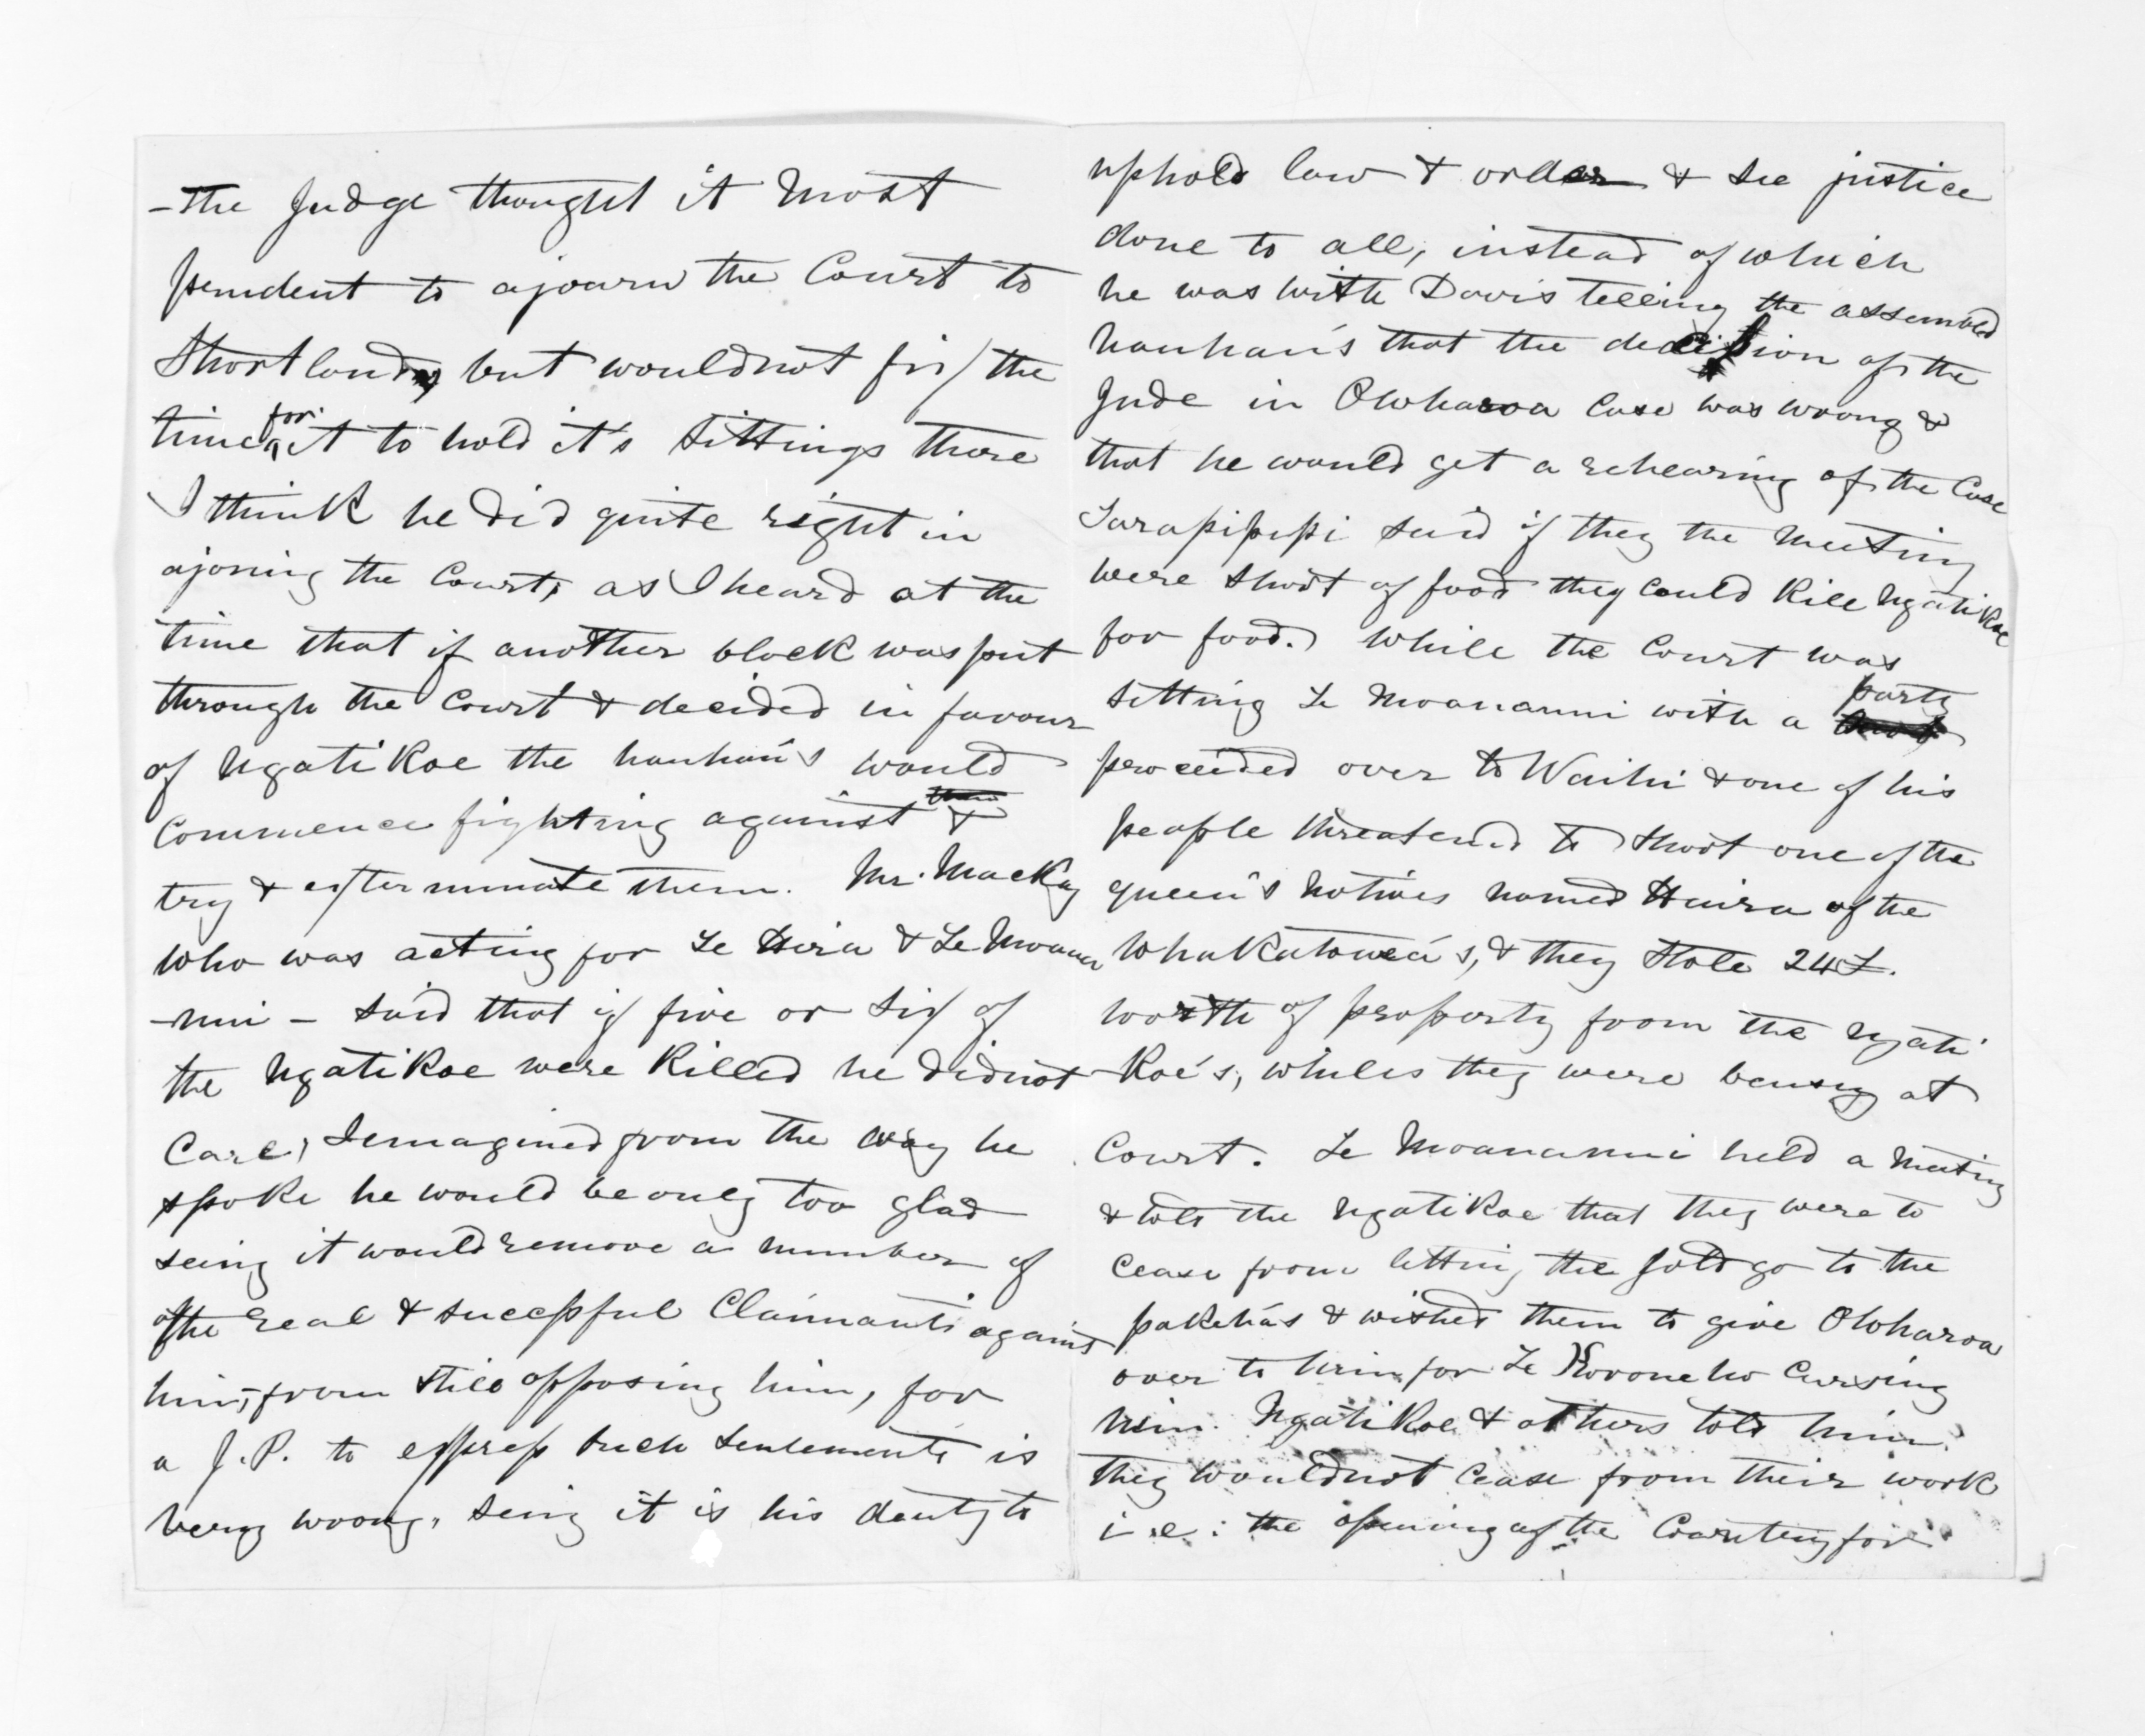 -The Judge thought it most
prudent to ajourn the Court to
Shortland, but wouldnot fix the
time for it to hold it's sittings there
I think he did quite right in
ajoning the Court, as I heard at the
time that if another block was put
through the Court & decided in favour
of Ngatikoe the hauhau's would
Commence fighting against &
try & exterminate them. Mr. Mackay
who was acting for Te Hira & Te Moana
-nui - said that if five or six of
the Ngatikoe were killed he didnot
Care, I emagined from the way he
spoke he would be only too glad
seing it would remove a number of
of the real & sucessful Claimants against
him, from still opposing him, for
a J.P. to express such sentements is
very wrong, seing it is his deuty to
uphold law & order & see justice
done to all, instead of which
he was with Davis telling the assembled
hauhau's that the decission of the
Jude in Owharoa Case was wrong &
that he would get a rehearing of the Case
Tarapipipi said if they the meeting
were short of food they Could kill Ngatikoe
for food. While the Court was
sitting Te Moananui with a party
proceeded over to Waihi & one of his
people threatened to shoot one of the
queen's natives named Hairu of the
Whakatowea's, & they stole 24£.
worth of property from the Ngati
koe's, whiles they were beusy at
Court. Te Moananui held a meeting
& told the Ngatikoe that they were to
Cease from letting the gold go to the
pakeha's & wished them to give Owharoa
over to him for Te Koroneho Cursing
him. Ngatikoe & others told him
they wouldnot Cease from their work
i.e: the opening of the Countery for